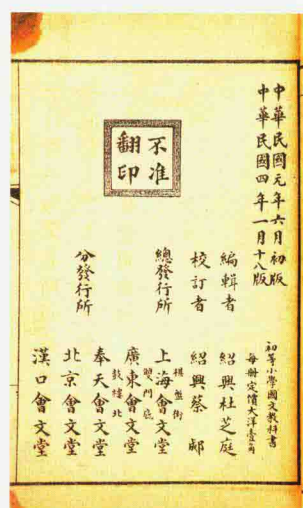 中華民國元年六月初版
中華民國四年一月十八版
初等小學國文教科書
每冊定價大洋壹角
不准
翻印
編輯者 紹興杜芝庭
校訂者 紹興蔡郕
總發行所 上海棋盤街會文堂
分發行所
廣東雙門底會文堂
奉天鼓樓北會文堂
北京會文堂
漢口會文堂